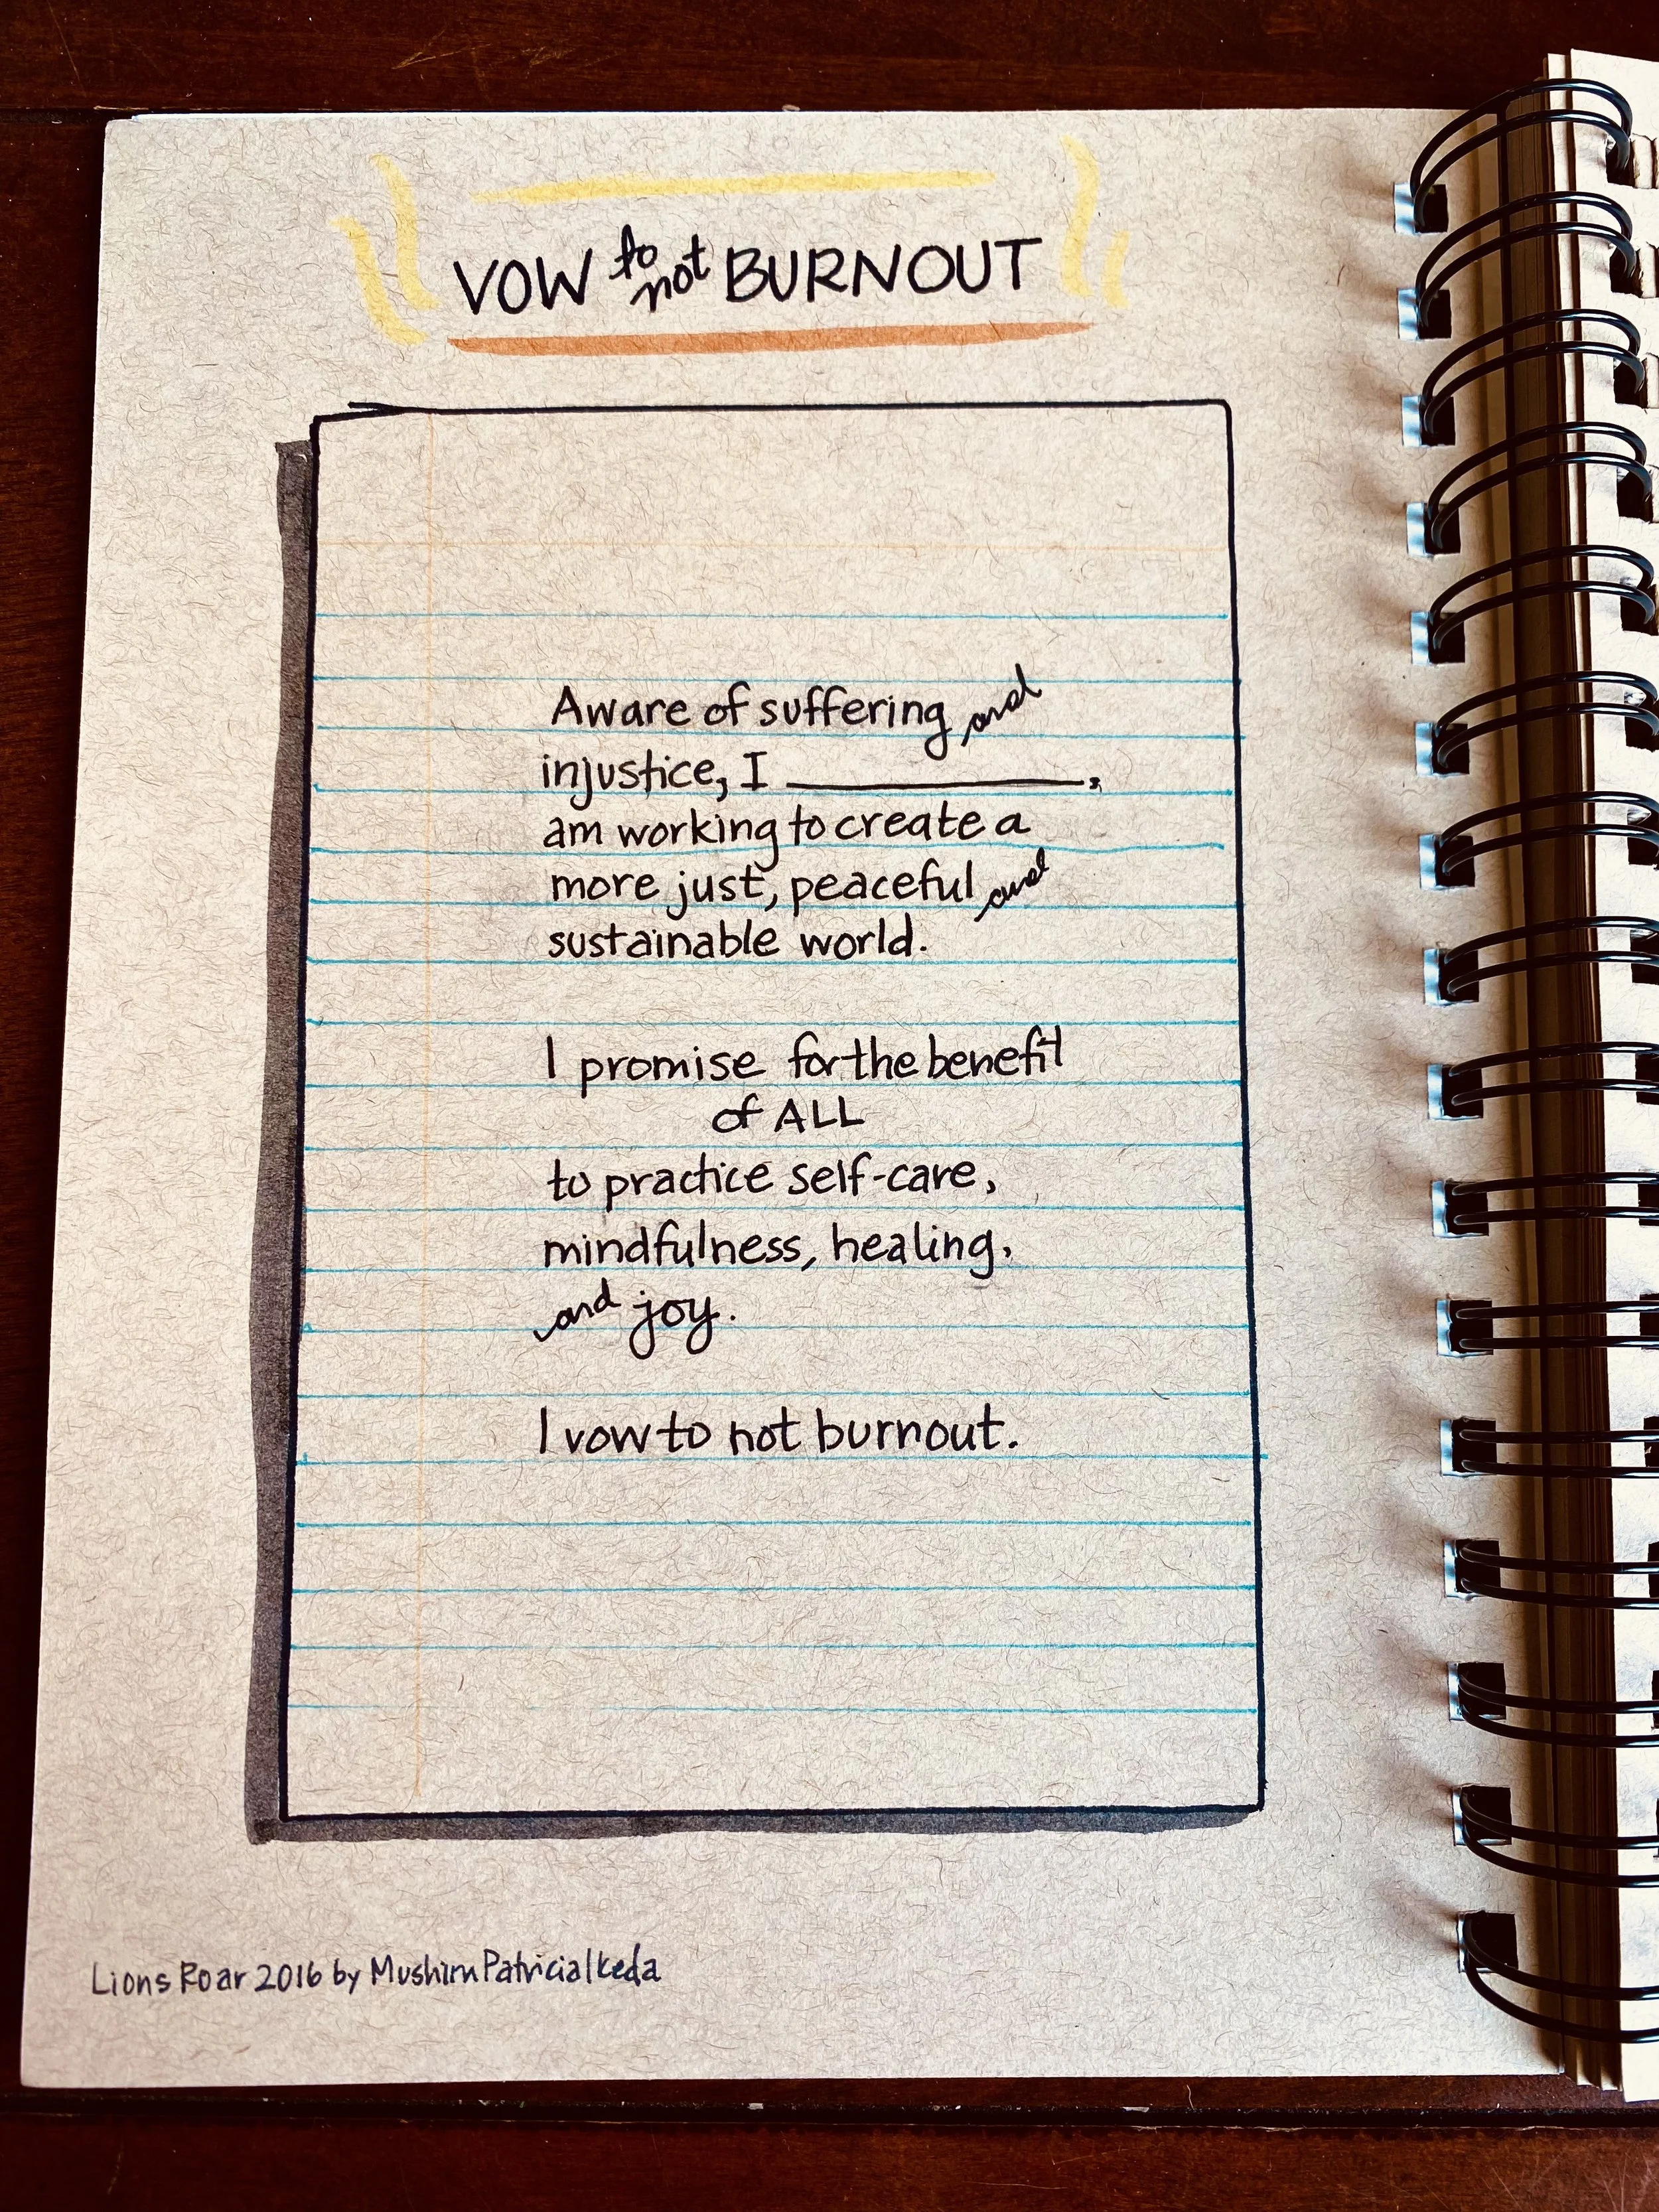 VOW to not BURNOUT
Aware of suffering and
injustice, I ____________,
am working to create a
more just, peaceful and
sustainable world.
I promise for the benefit
of ALL
to practice self-care,
mindfulness, healing,
and joy.
I vow to not burnout.
Lions Roar 2016 by Mushim Patricia Ikeda